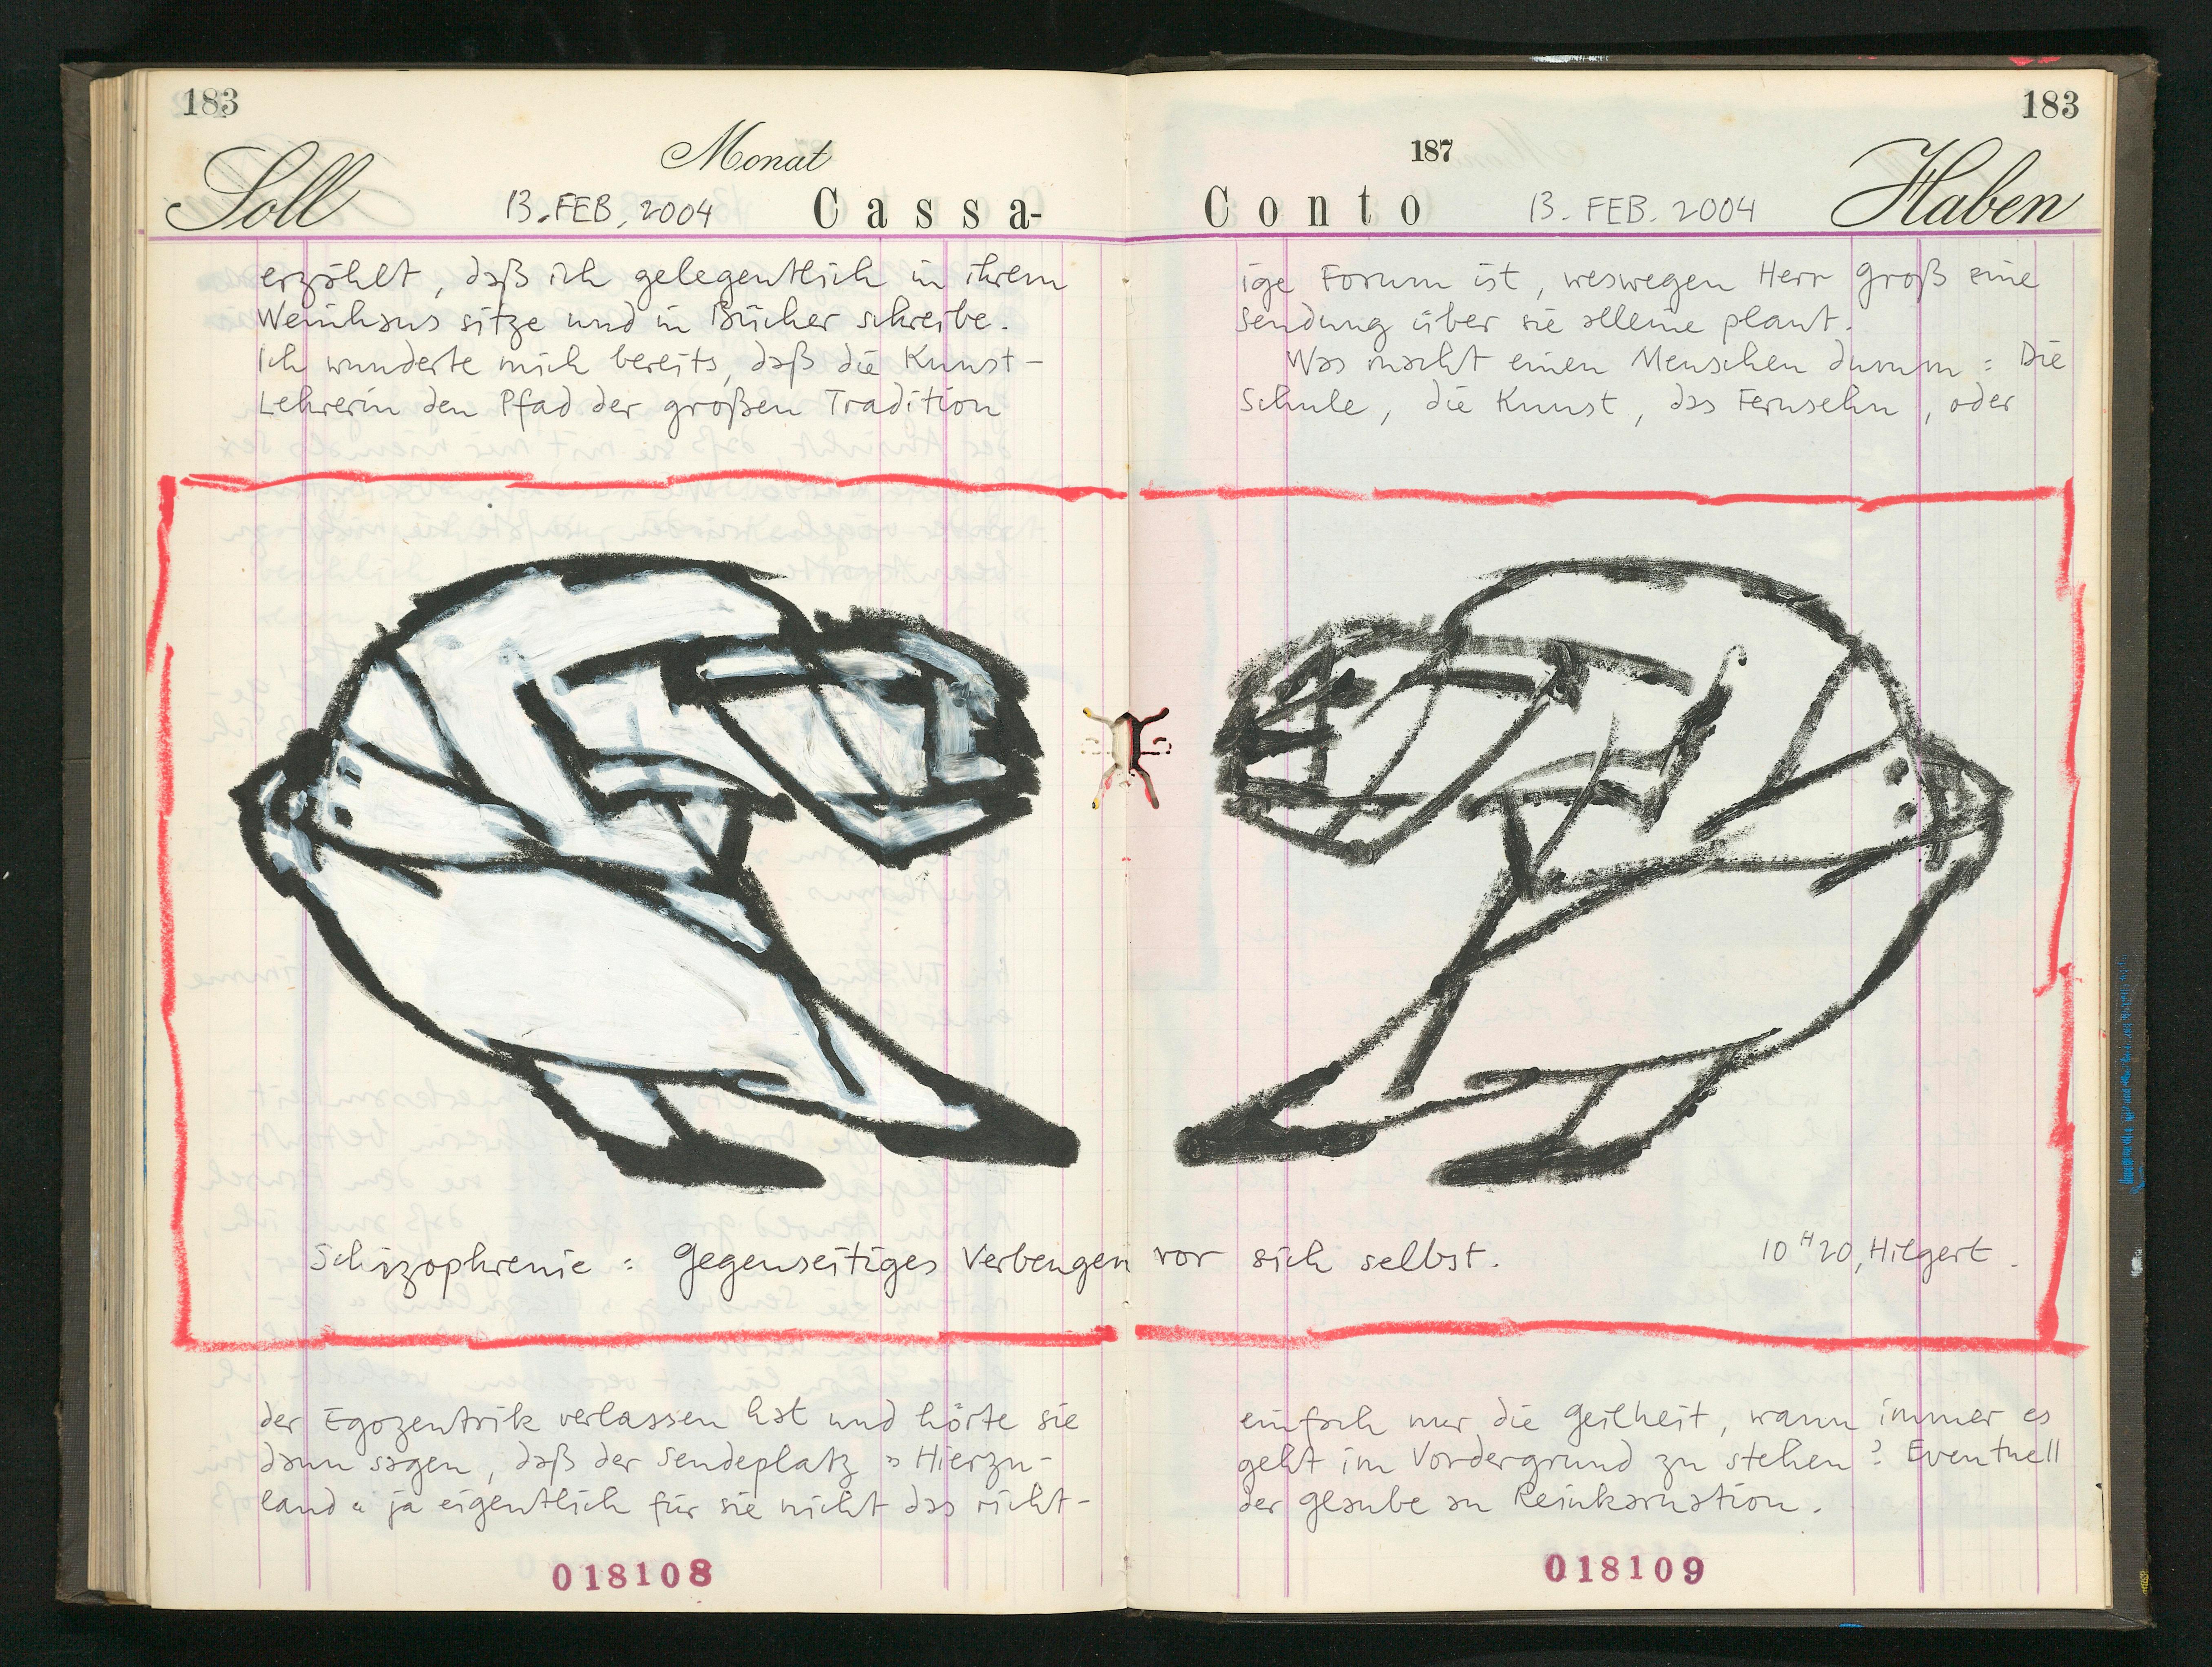 183
Soll
Monat
13. FEB. 2004
Cassa-
erzählt, daß ich gelegentlich in ihrem
Weinhaus sitze und in Bücher schreibe.
Ich wunderte mich bereits, daß die Kunst-
Lehrerin den Pfad der großen Tradition
der Egozentrik verlassen hat und hörte sie
dann sagen, daß der Sendeplatz »Hierzu-
land« ja eigentlich für sie nicht das richt-
018108
183
187
Conto
13. FEB. 2004
Haben
ige Forum ist, weswegen Herr Groß eine
Sendung über sie alleine plant.
Was macht einen Menschen dumm: Die
Schule, die Kunst, das Fernsehn, oder
Schizophrenie: Gegenseitiges Verbeugen vor sich selbst.
10 H 20, Hilgert.
einfach nur die Geilheit, wann immer es
geht im Vordergrund zu stehen? Eventuell
der Glaube an Reinkarnation.
018109